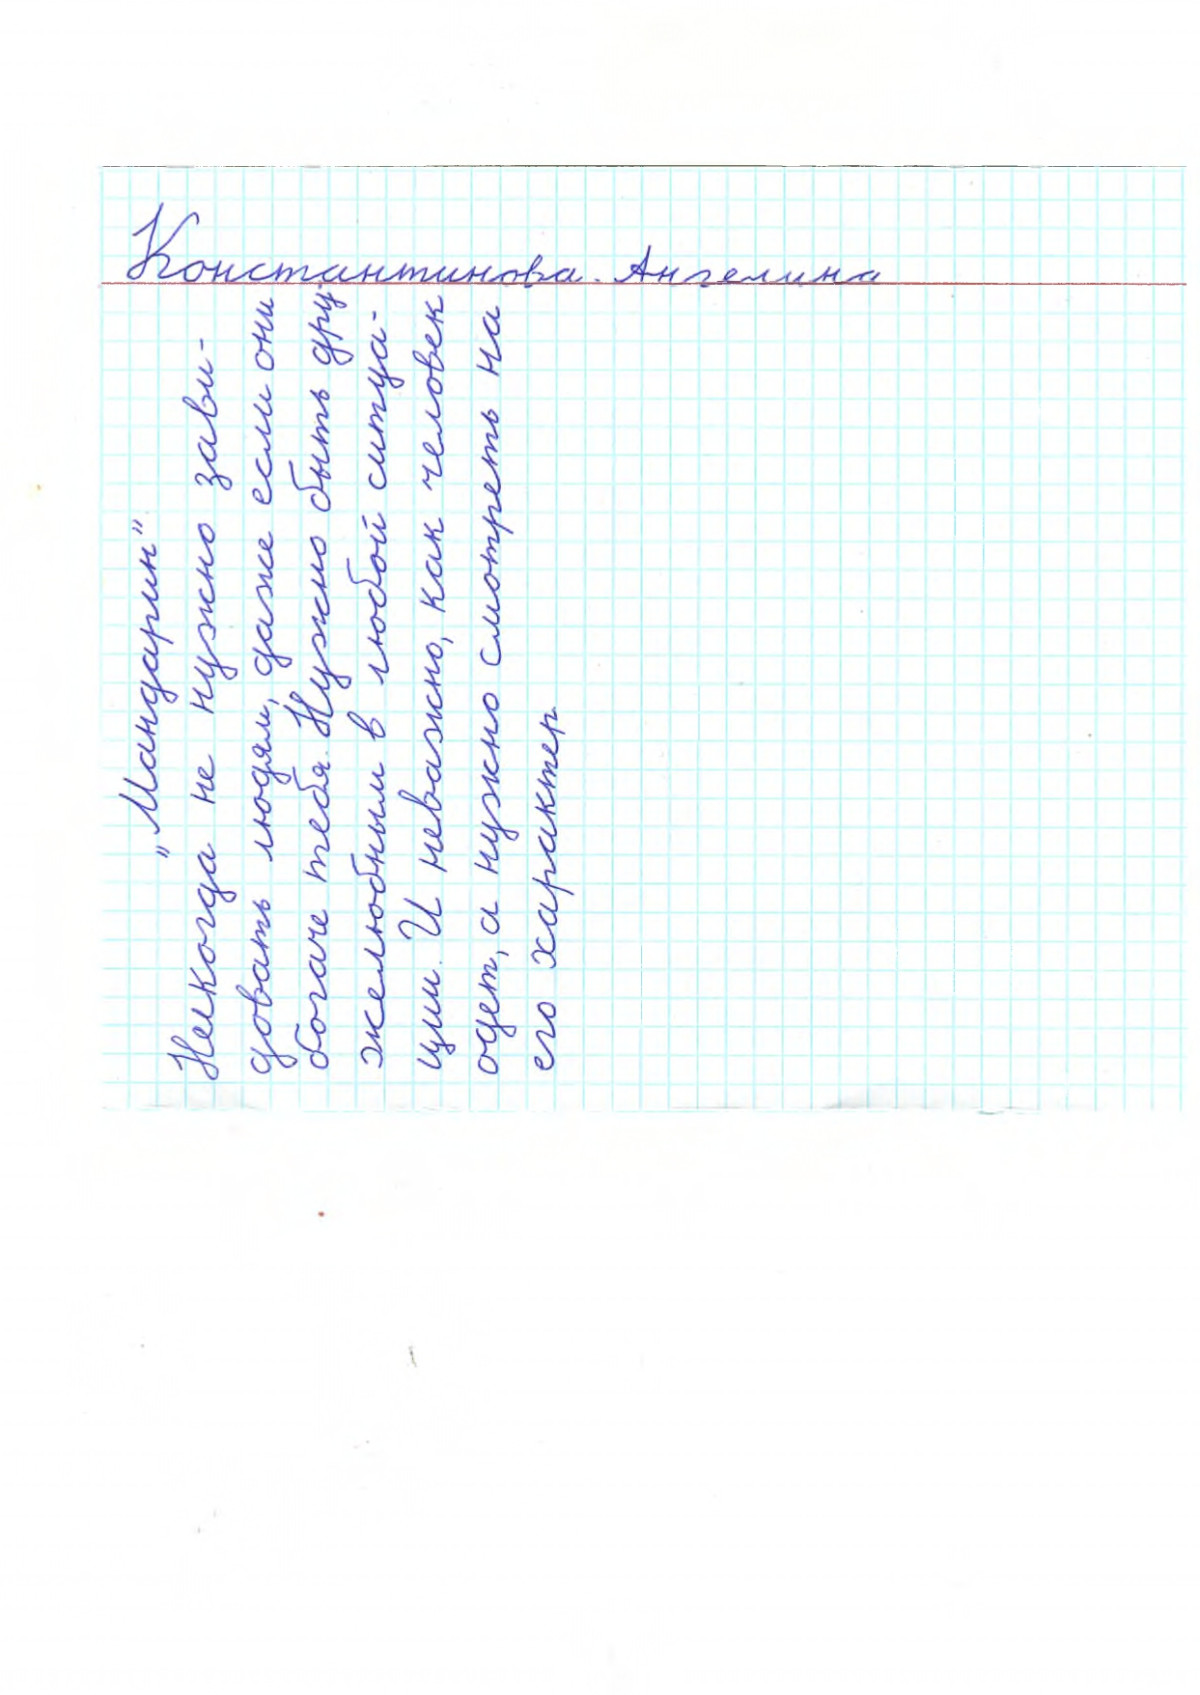 Константинова. Ангелина
"Мандарин"
Некогда не нужно зави-
довать людям, даже если они
богаче тебя. Нужно быть дру-
желюбным в любой ситуа-
ции. И неважно, как человек
одет, а нужно смотреть на
его характер